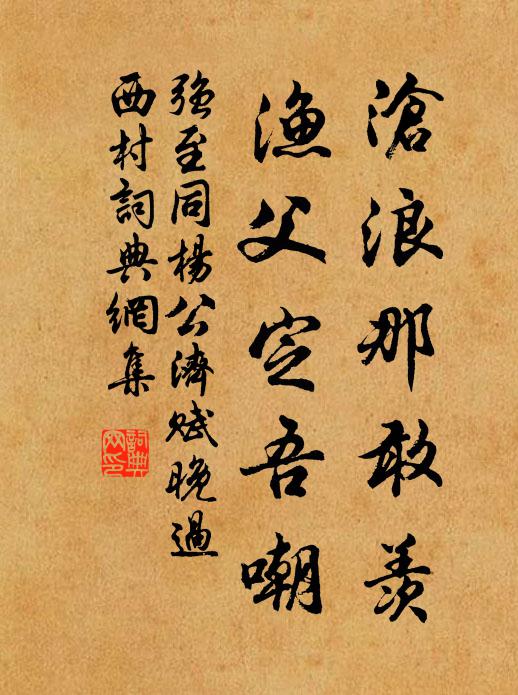 滄浪那敢羨
漁父定吾嘲
強至同楊公濟賦晚過
西村詞典網集
詞典網印